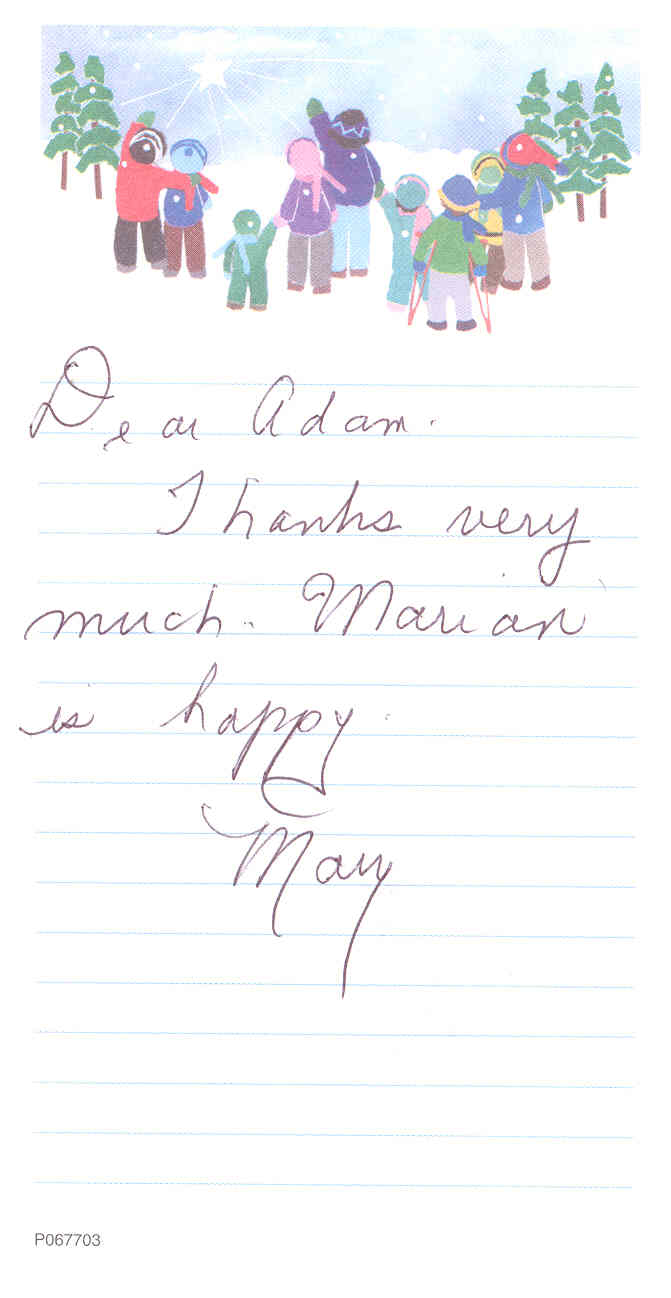 Dear Adam.
Thanks very
much. Marian
is happy.
Mary
P067703